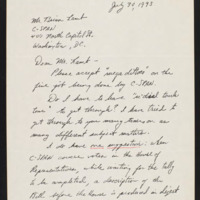 July 31, 1995
Mr. Brian Lamb
C-SPAN
400 North Capitol St.
Washington, DC.
Dear Mr. Lamb -
Please accept "mega dittos" on the
fine job being done by C-SPAN.
Do I have to have
to get through" I have tried to
get through to you many times on so
many different subject matters.
I do have one suggestion. When
C-SPAN covers votes in the House of
Representatives, while waiting for the tally
to be completed, a description of the
bill before the house is produced in